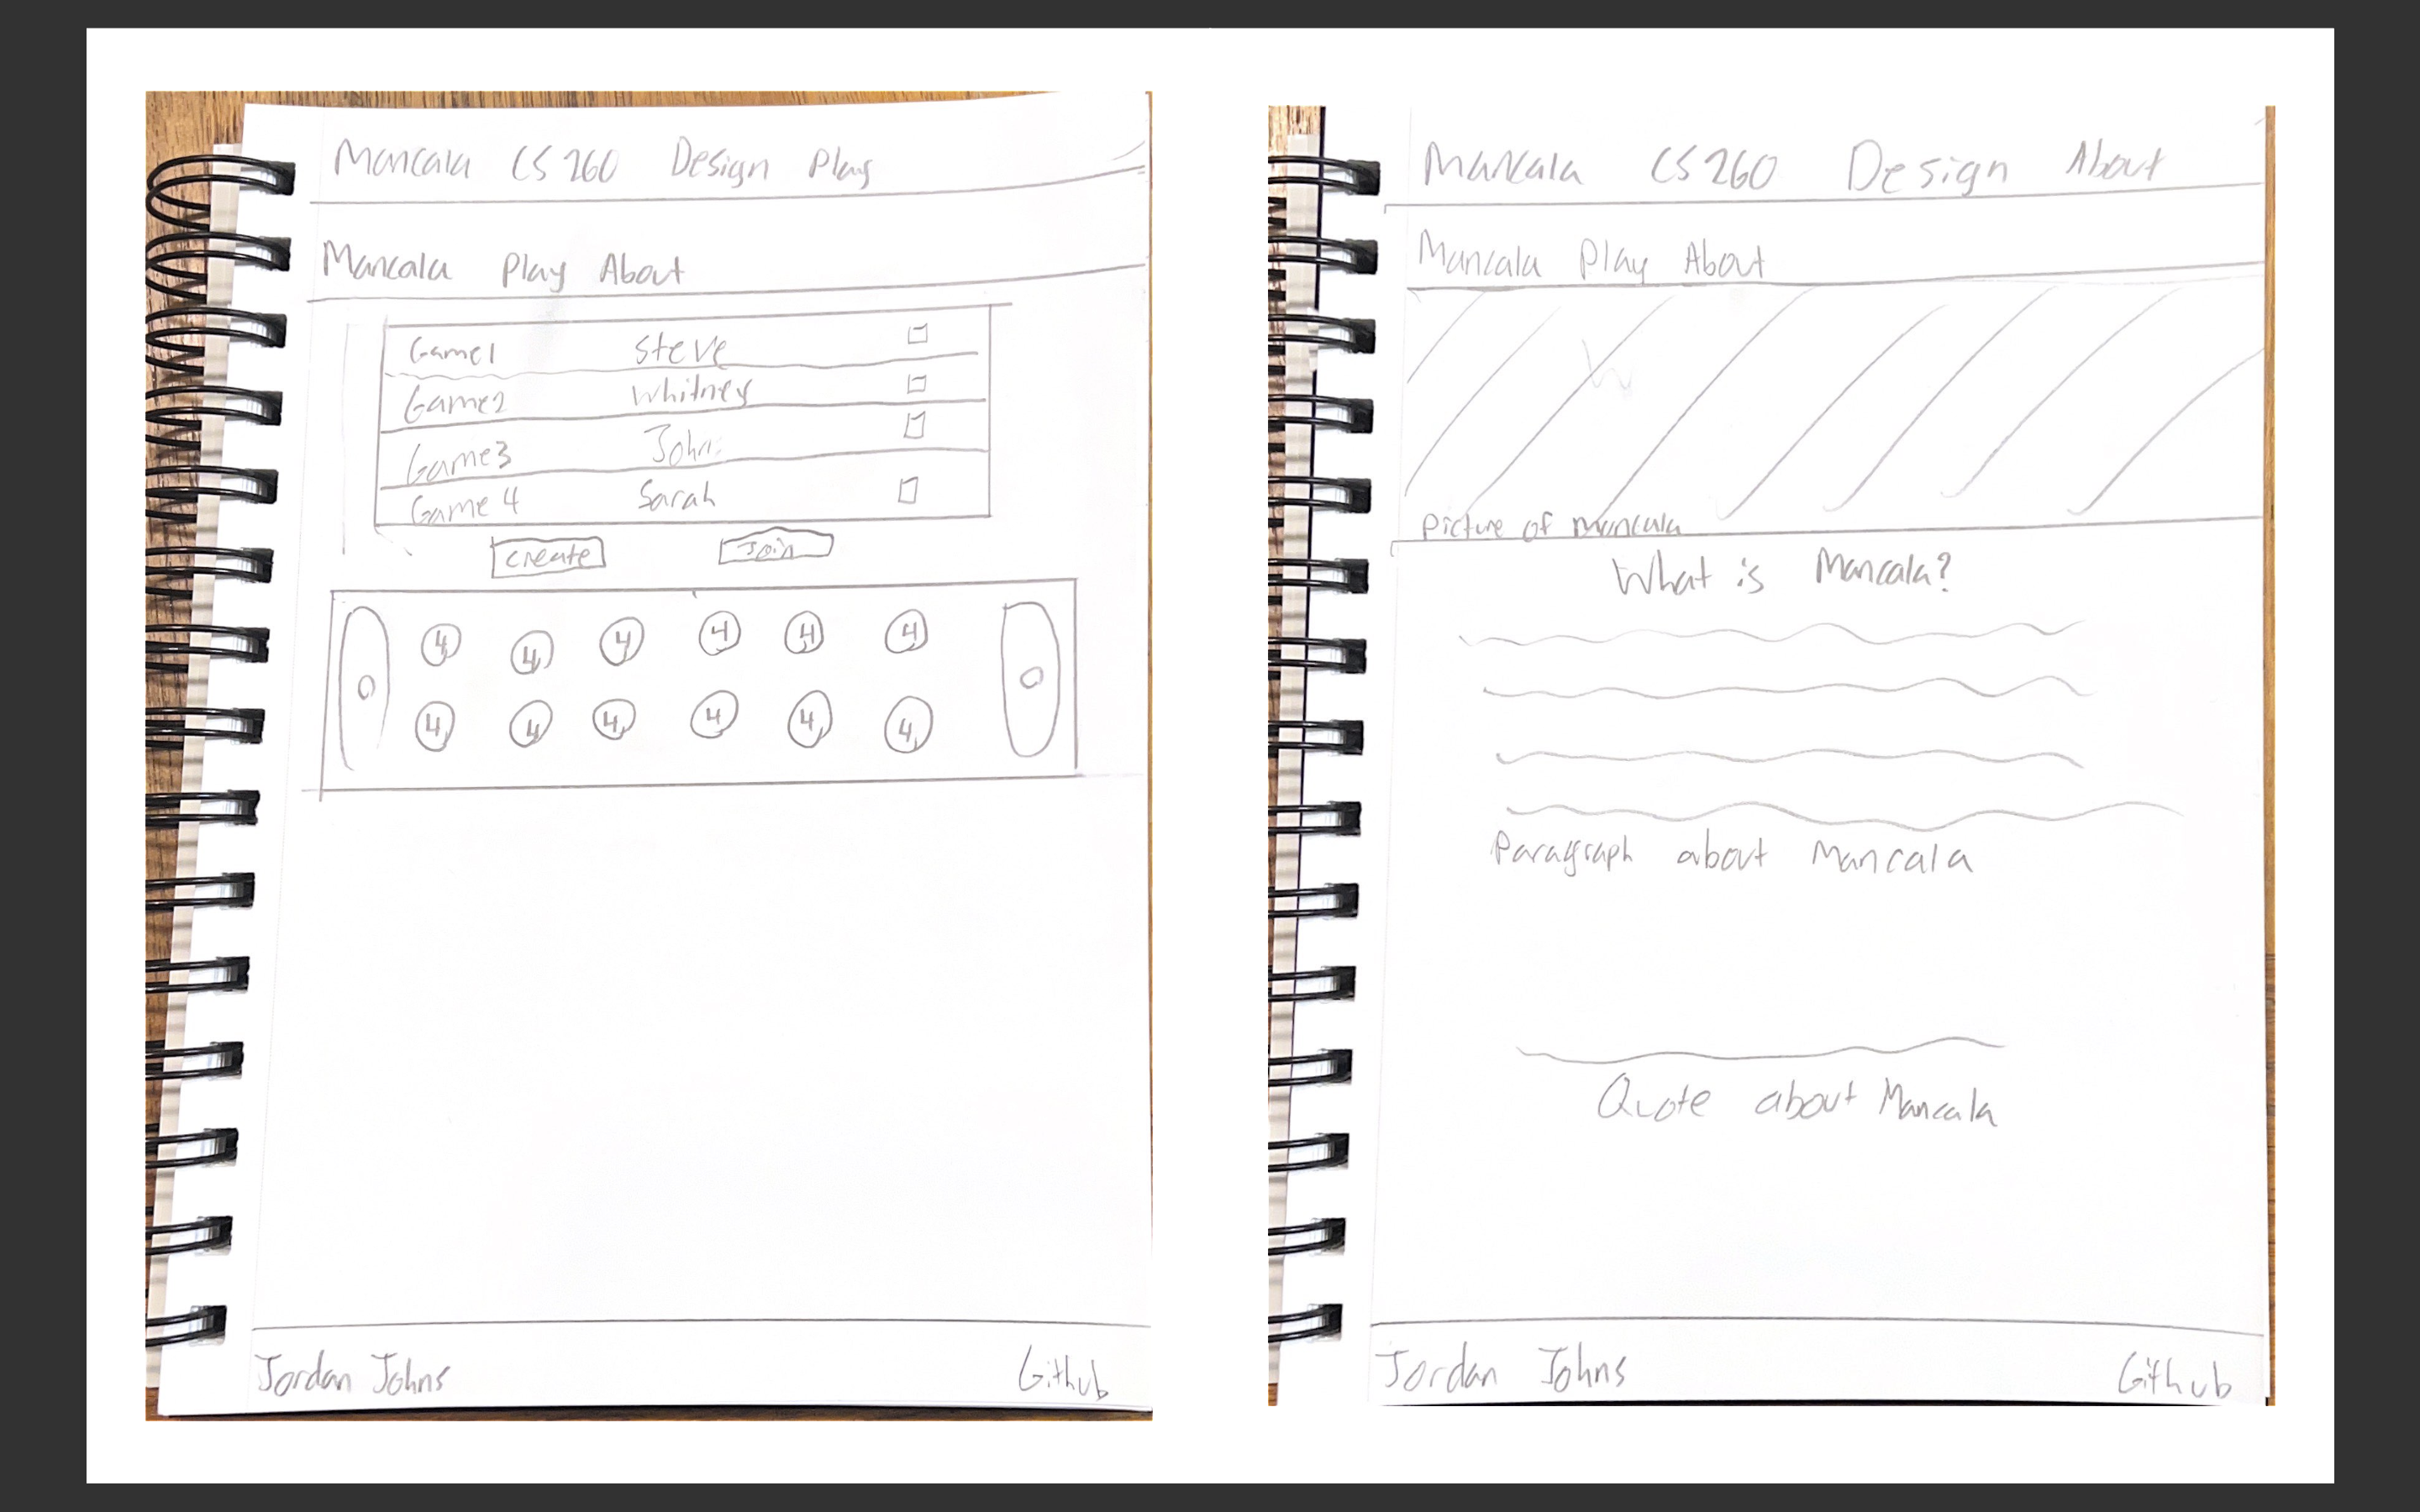 Mancala CS 260 Design Play
Mancala Play About
Game1 Steve
Game2 Whitney
Game3 John
Game 4 Sarah
create Join
4 4 4 4 4 4
0 0
4 4 4 4 4 4
Jordan Johns Github
Mancala CS 260 Design About
Mancala Play About
Picture of mancala
What is Mancala?
Paragraph about Mancala
Quote about Mancala
Jordan Johns Github